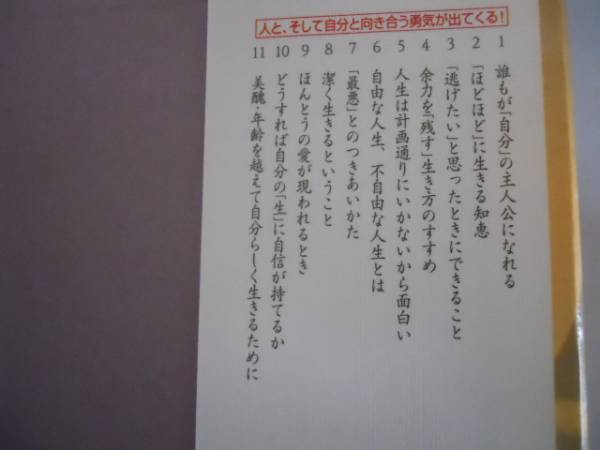 人と、そして自分と向き合う勇気が出てくる!
1 誰もが「自分」の主人公になれる
2 「ほどほど」に生きる知恵
3 「逃げたい」と思ったときにできること
4 余力を「残す」生き方のすすめ
5 人生は計画通りにいかないから面白い
6 自由な人生、不自由な人生とは
7 「最悪」とのつきあいかた
8 潔く生きるということ
9 ほんとうの愛が現われるとき
10 どうすれば自分の「生」に自信が持てるか
11 美醜・年齢を越えて自分らしく生きるために